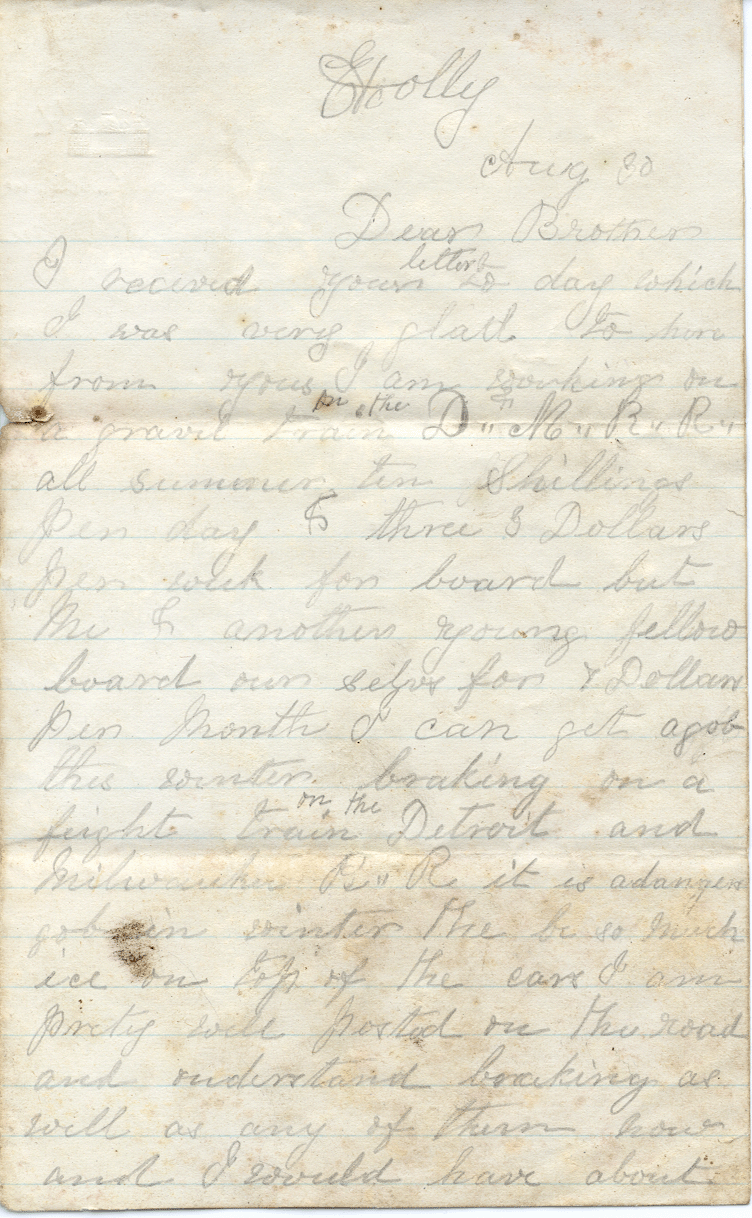 Holly
Aug 30
Dear Brother
letter
I received your to day which
I was very glad to here
from you I am working on
on the
a gravil train D & M " R " R "
all summer ten Shillings
Per day & three 3 Dollars
Per week for board but
Me & another young fellow
board our selfs for 7 Dollars
Per Month I can get a gob
this winter braking on a
on the
fright train Detroit and
Milwaukee R " R it is a danger
gob in winter the be so much
ice on top of the cars I am
Prety well Posted on the road
and understand braking as
well as any of them now
and I would have about